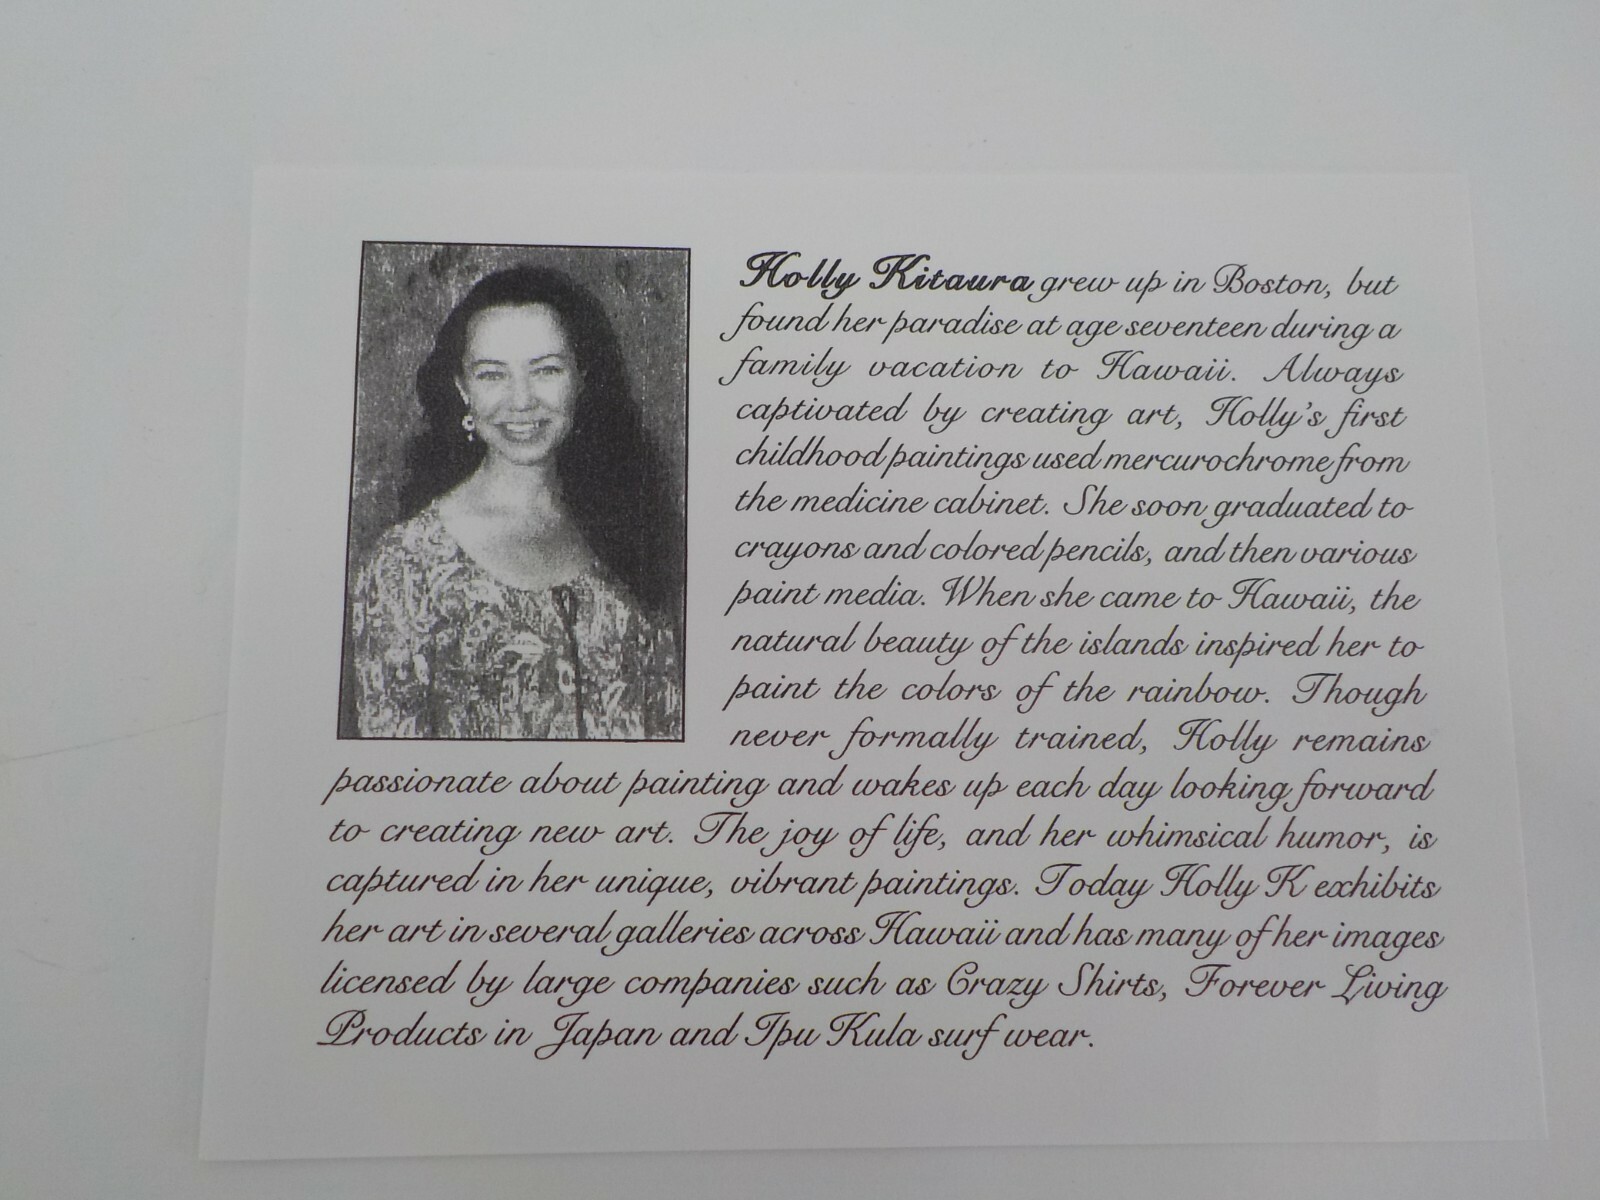 Holly Kitaura grew up in Boston, but
found her paradise at age seventeen during a
family vacation to Hawaii. Always
captivated by creating art, Holly's first
childhood paintings used mercurochrome from
the medicine cabinet. She soon graduated to
crayons and colored pencils, and then various
paint media. When she came to Hawaii, the
natural beauty of the islands inspired her to
paint the colors of the rainbow. Though
never formally trained, Holly remains
passionate about painting and wakes up each day looking forward
to creating new art. The joy of life, and her whimsical humor, is
captured in her unique, vibrant paintings. Today Holly K exhibits
her art in several galleries across Hawaii and has many of her images
licensed by large companies such as Crazy Shirts, Forever Living
Products in Japan and Ipu Kula surf wear.